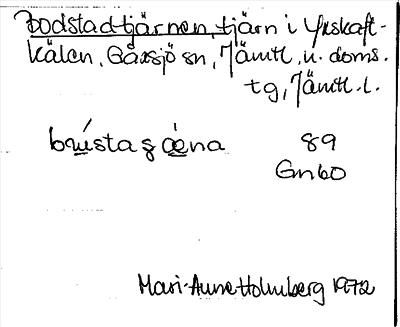 Bodstadtjärnen, tjärn i Yxskaft-
kälen, Gåxsjö sn, Jämtl. n. doms.
tg, Jämtl. l.
89
Gn60
Mari-Anne Holmberg 1972